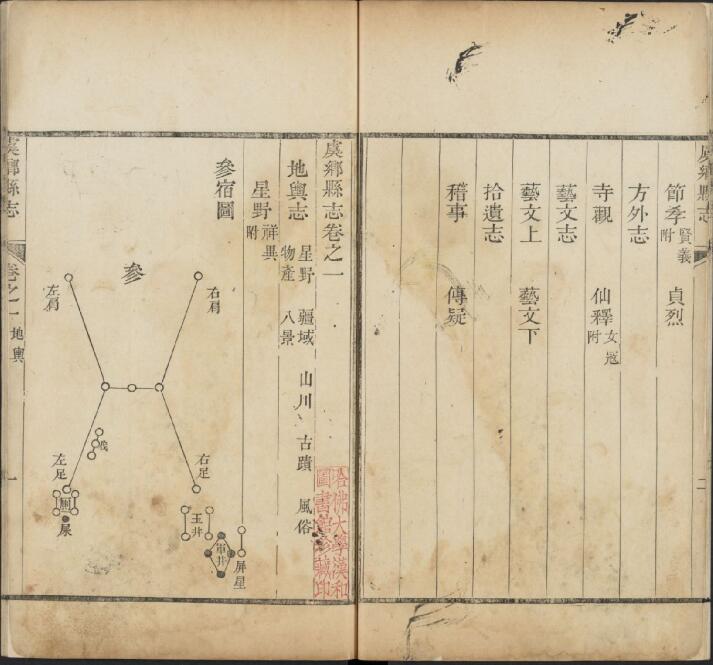 虞鄉縣志
節季 賢義附 貞烈
方外志
寺觀 仙釋 女冠附
藝文志
藝文上 藝文下
拾遺志
稽事 傳疑
二
虞鄉縣志卷之一
地輿志 星野 疆域 山川 古蹟 風俗
物產 八景
星野 祥異附
參宿圖
參
右肩
左肩
伐
右足
左足
廁
屎
玉井
軍井
屏星
虞鄉縣志
卷之一 地輿
一
哈佛大學漢和
圖書館珍藏印